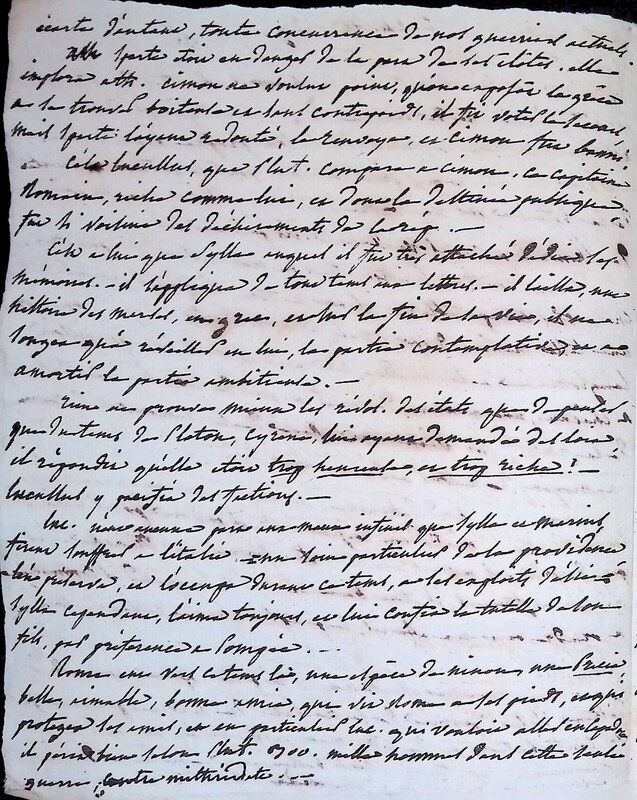 écarte d'antant, toute concurrence de nos guerriers actuels.
Sparte étoit en danger de la part de ses ilotes. elle
implora ath. Cimon ne voulut point, qu'on exposa la grèce
a se trouver boitante et sans contrepoids, il fit voter le secours
mais Sparte layant redouté, le renvoya, et Cimon fut banni
C'est Lucullus, que Plut. compare a Cimon, ce capitaine
Romain, riche comme lui, et dont la destinée publique,
fut si voisine des déchirements de la rép. —
C'est a lui que Sylla auquel il fut très attaché dédia ses
mémoires. — il s'appliqua de tout tems aux lettres. — il laissa, une
histoire des marses, en grec, et sur la fin de sa vie, il ne
songea qu'a réveiller en lui, la partie contemplative et a
amortir la partie ambitieuse. —
Rien ne prouve mieux les révol. des états que de penser
que du tems de Platon, Cyrene, lui ayant demandée des loix
il répondit qu'elle étoit trop heureuse, et trop riche! —
Lucullus y pacifia des factions. —
Luc. n'eut aucune part aux maux infinis que Sylla et Marius
firent souffrir a l'italie — un soin particulier de la providence
l'en préserva, et l'occupa durant ce tems, a ses exploits d'asie
Sylla cependant, l'aima toujours, et lui confia la tutelle de son
fils, par préférence a Pompée. —
Rome eut vers ce tems la, une espèce de ninon, une Précia
belle, aimable, bonne amie, qui vit Rome a ses pieds, et qui
protegea ses amis, et en particulier Luc. qui vouloit aller
il périt bien selon Plut. 300. mille hommes dans cette seule
guerre, contre mithridate. —